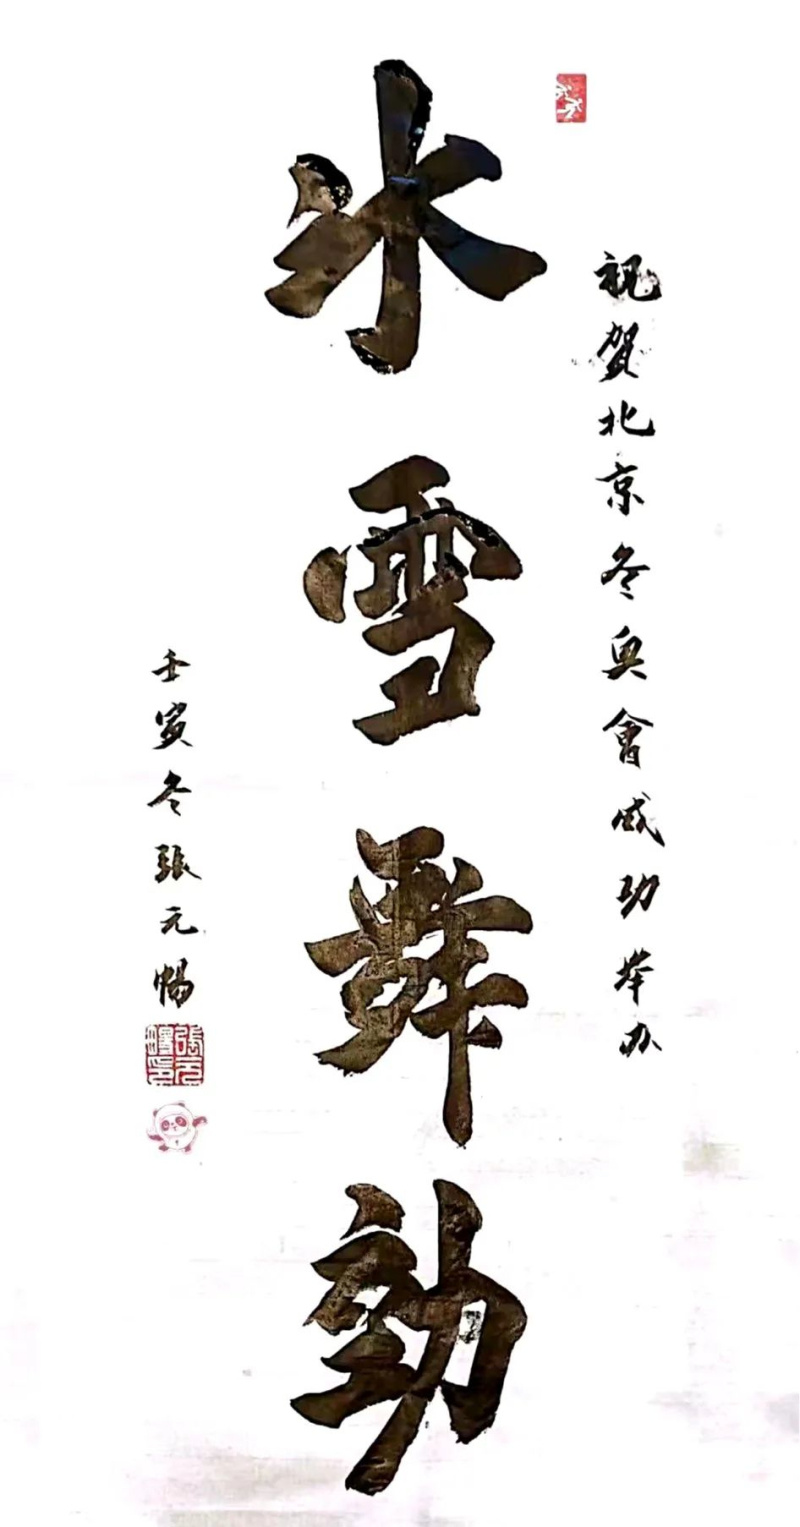 祝賀北京冬奥會成功举办
冰雪舞勁
壬寅冬張元暢
張元暢印